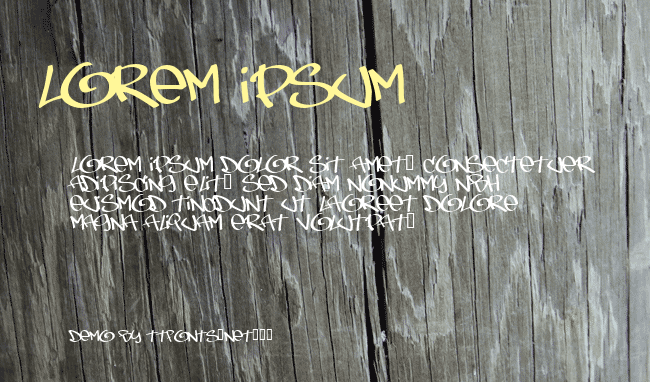 LOREM IPSUM
LOREM IPSUM DOLOR SIT AMET▯ CONSECTETUER
ADIPISCING ELIT▯ SED DIAM NONUMMY NIBH
EUISMOD TINCIDUNT UT LAOREET DOLORE
MAGNA ALIQUAM ERAT VOLUTPAT▯
DEMO BY TTFONTS▯NET▯▯▯